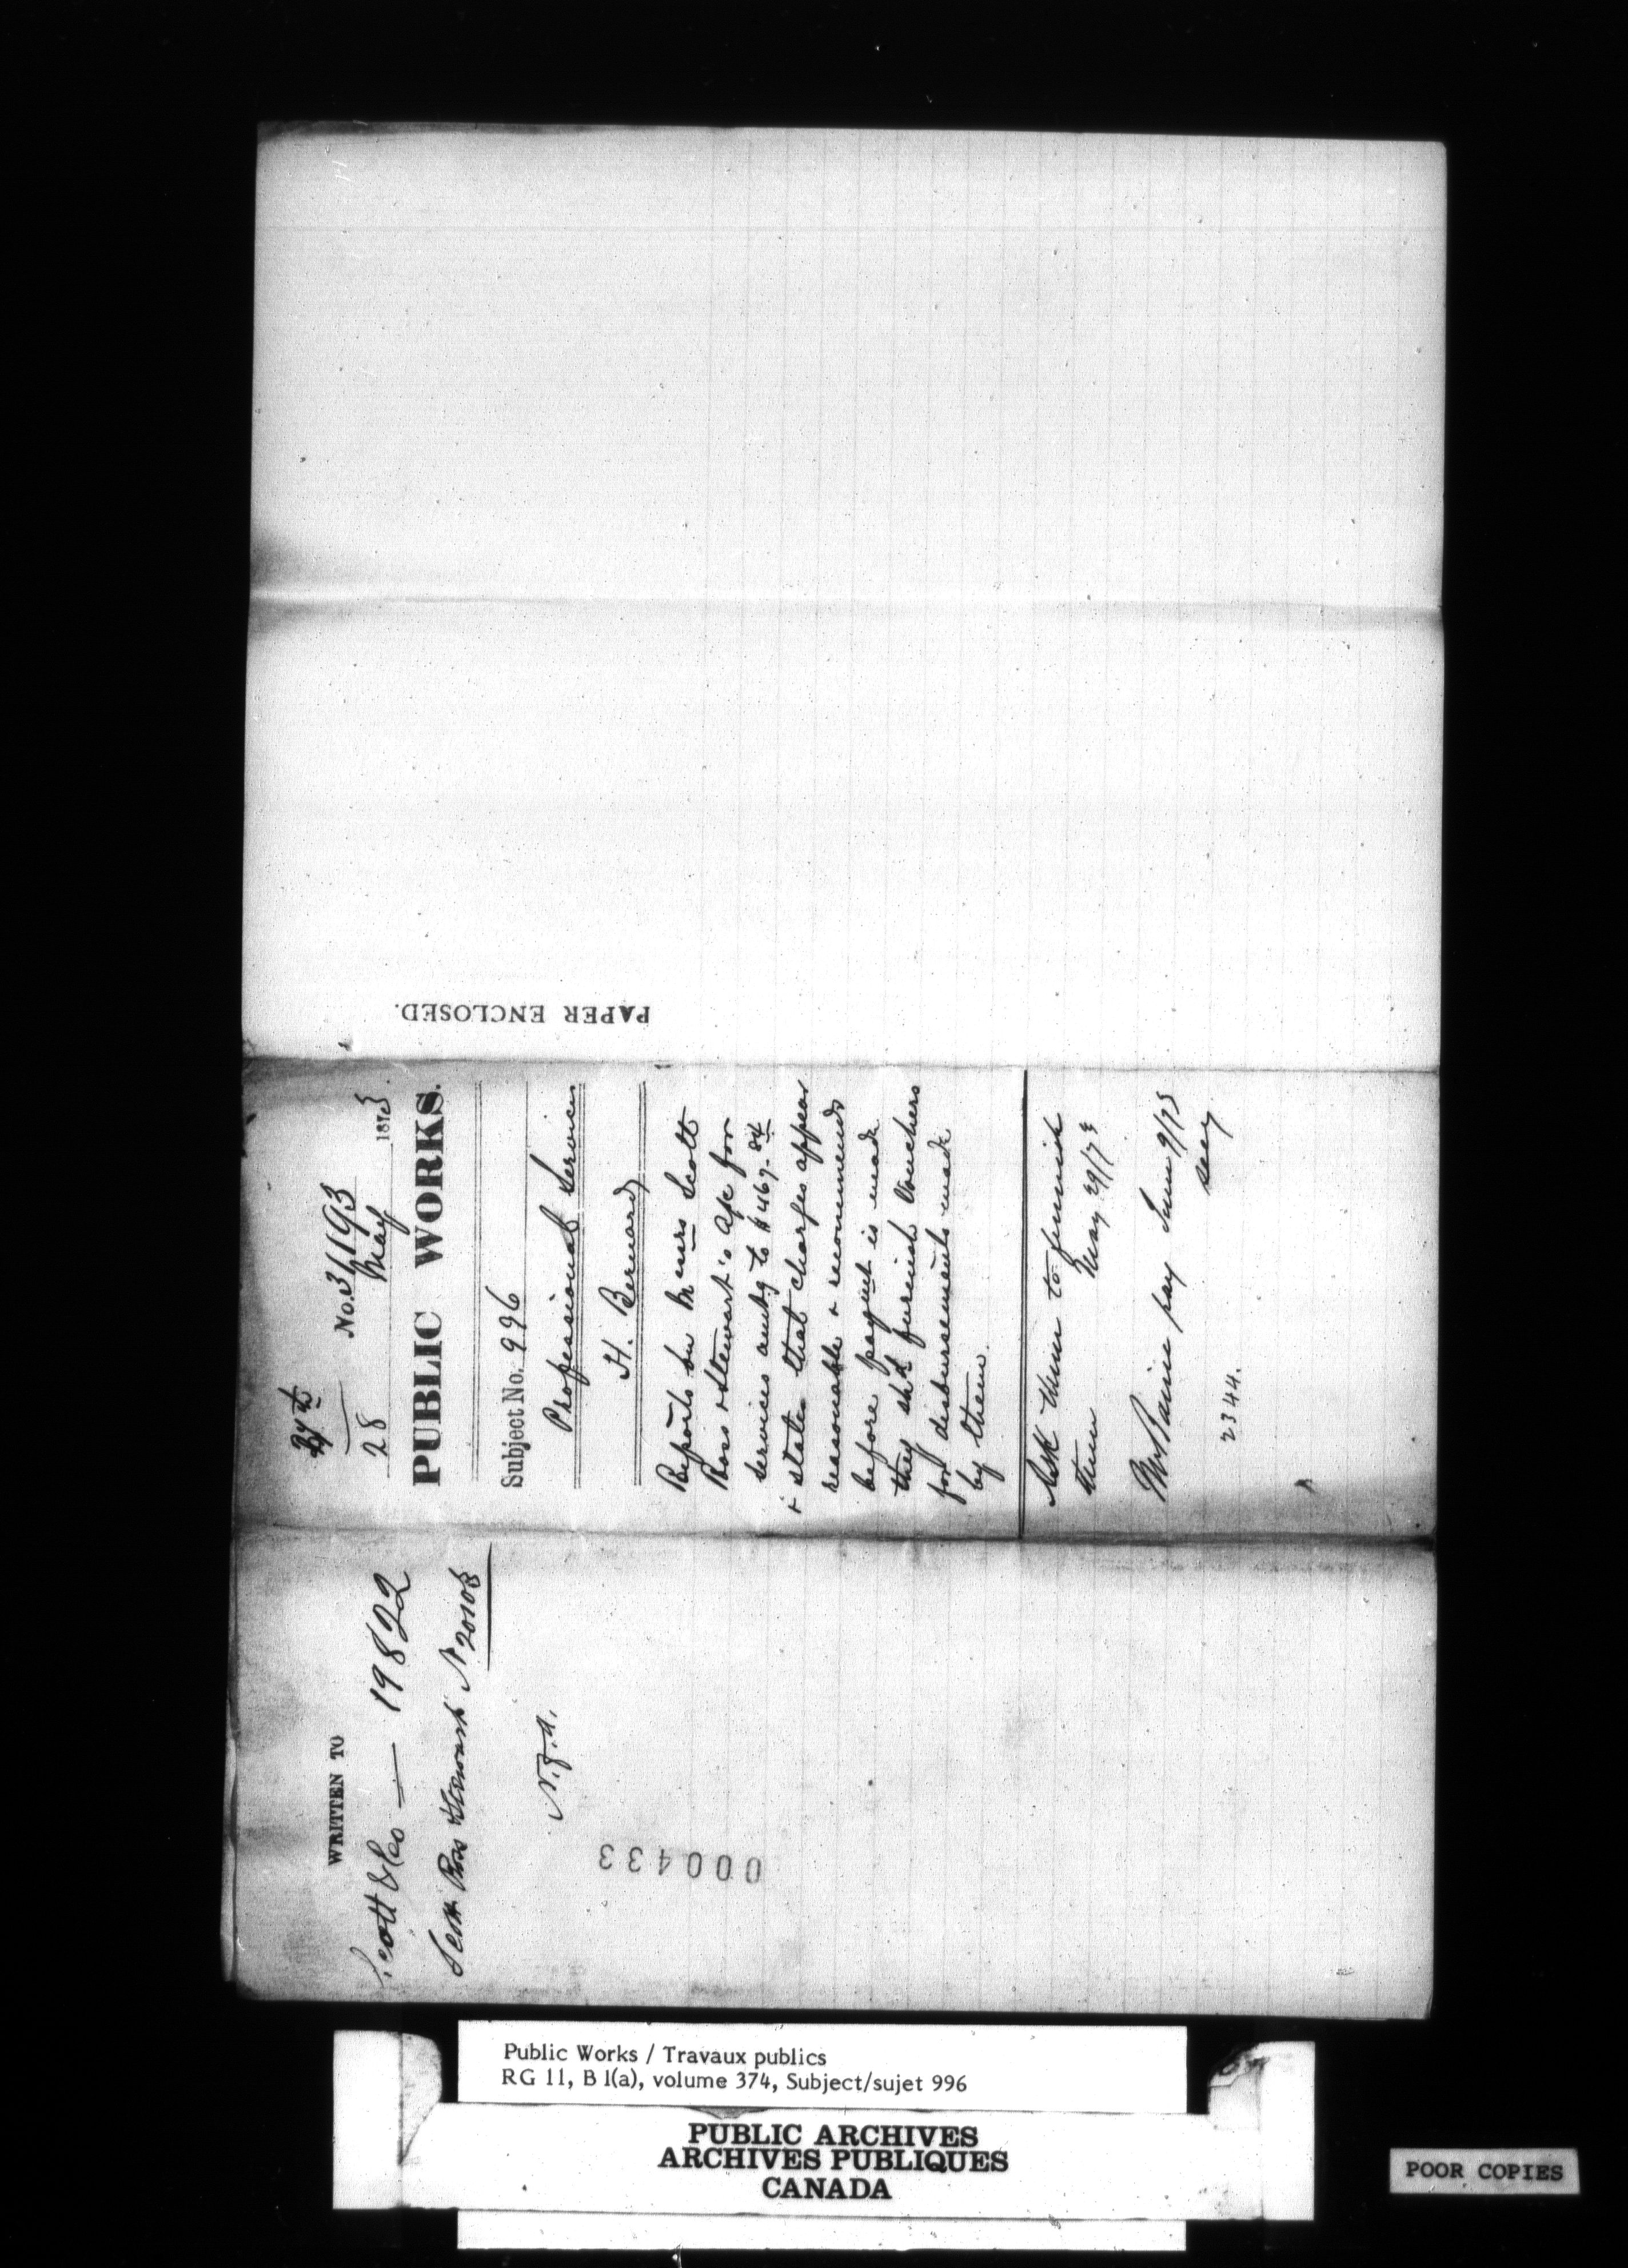 WRITTEN TO
Scott & Co — 19822
Scott Ross & Stewart N 20108
N.F.A.
000433
No. 31193
28 May 1873.
PUBLIC WORKS.
Subject No. 996
Professional Services
H. Bernard
Reports on Messrs Scott
Ross & Stewart's a/c for
services amtg to $467.84
& states that charges appear
reasonable & recommends
before paymt is made
they shd furnish Vouchers
for disbursements made
by them.
Ask them to furnish
them May 29/73
Mr Baine pay June 9/73
2344.
PAPER ENCLOSED.
Public Works / Travaux publics
RG 11, B 1(a), volume 374, Subject/sujet 996
PUBLIC ARCHIVES
ARCHIVES PUBLIQUES
CANADA
POOR COPIES